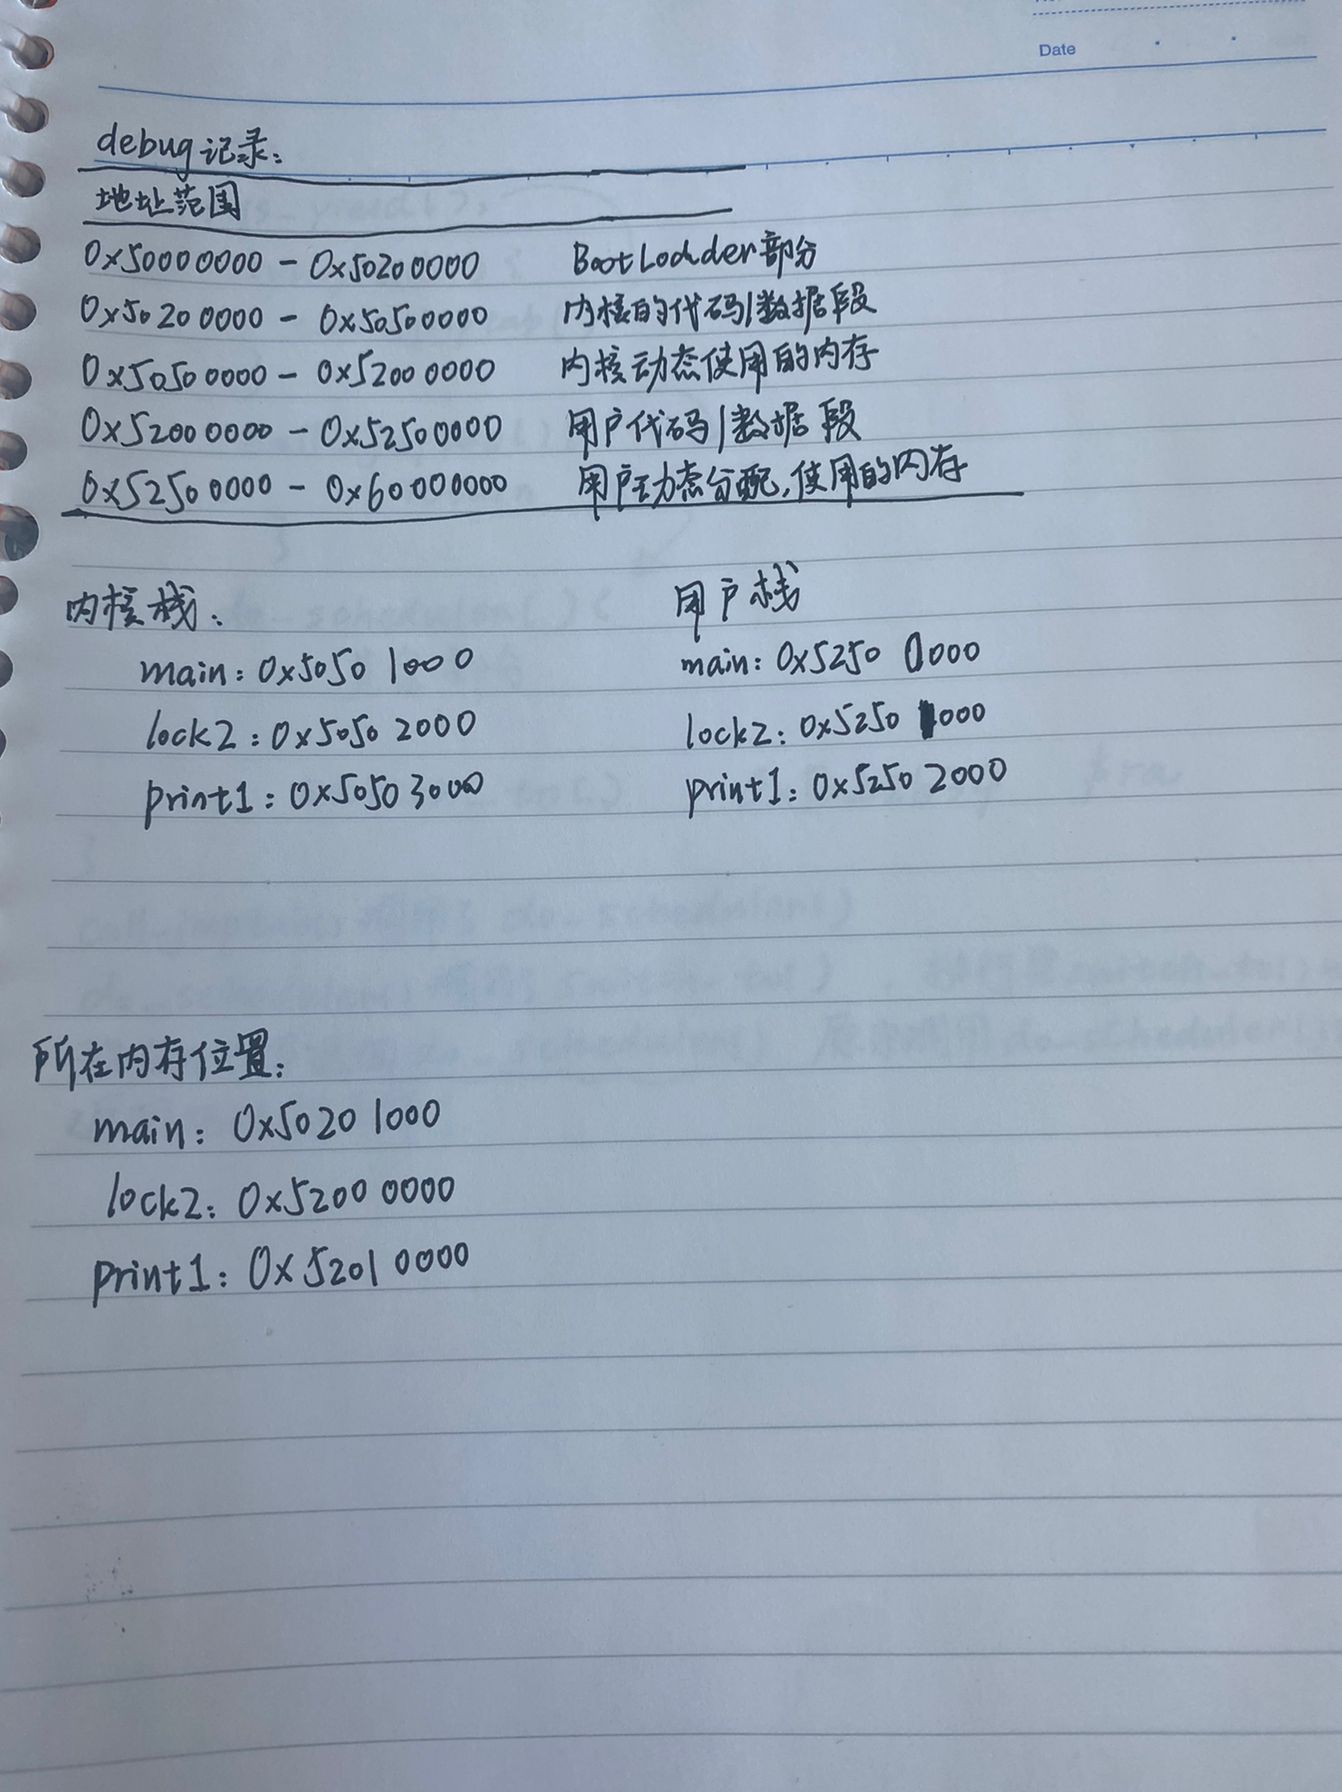 Date
debug记录:
地址范围
0x50000000 - 0x50200000 BootLoader部分
0x50200000 - 0x50500000 内核的代码/数据段
0x50500000 - 0x52000000 内核动态使用的内存
0x52000000 - 0x52500000 用户代码/数据段
0x52500000 - 0x60000000 用户动态分配,使用的内存
内核栈: 用户栈
main: 0x5050 1000 main: 0x5250 0000
lock2: 0x5050 2000 lock2: 0x5250 1000
print1: 0x5050 3000 print1: 0x5250 2000
所在内存位置:
main: 0x5020 1000
lock2: 0x5200 0000
print1: 0x5201 0000